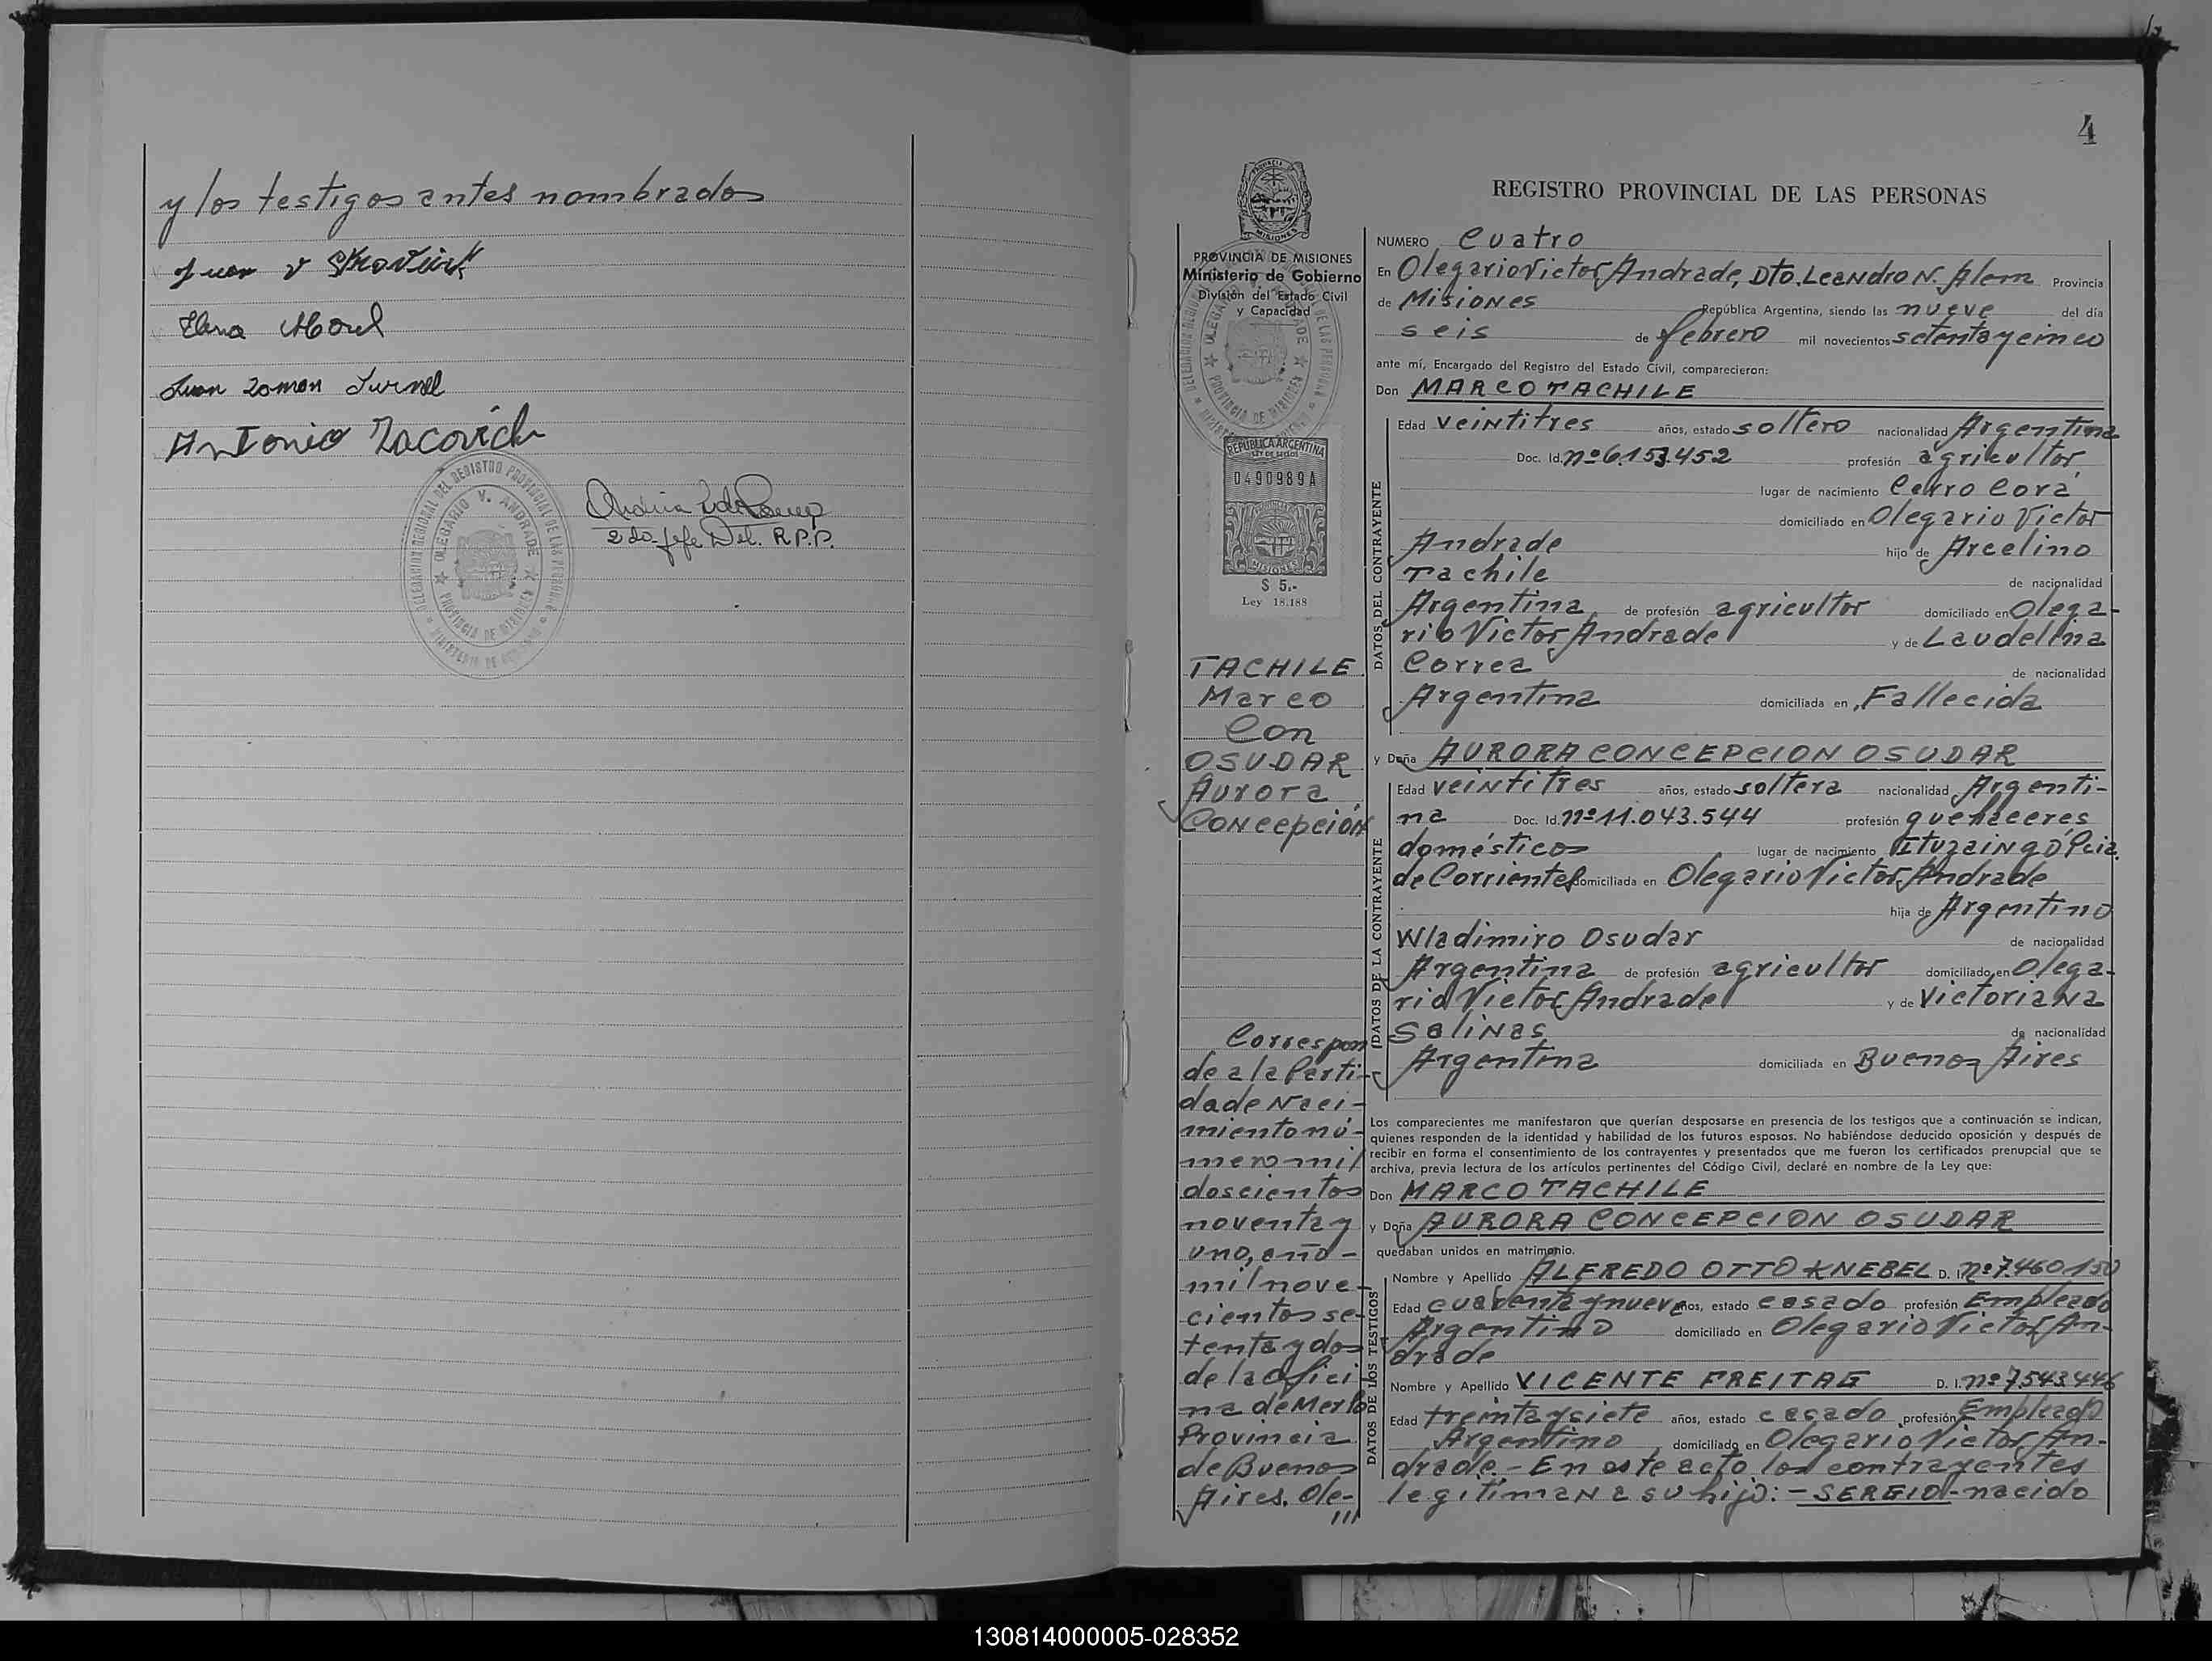 y los testigos antes nombrados
Juan V
Elena Morel
Juan Roman Turnel
Antonio Zacovich
2do Jefe Del. R.P.P.
DELEGACION REGIONAL DEL REGISTRO PROVINCIAL DE LAS PERSONAS
OLEGARIO V. ANDRADE
PROVINCIA DE MISIONES
MINISTERIO DE GOBIERNO
4
PROVINCIA
MISIONES
PROVINCIA DE MISIONES
Ministerio de Gobierno
División del Estado Civil
y Capacidad
REPUBLICA ARGENTINA
LEY DE SELLOS
0490989A
MISIONES
$ 5.-
Ley 18.188
TACHILE
Marco
Con
OSUDAR
Aurora
Concepción
Correspon
de a la Parti-
da de Naci-
miento nú-
mero mil
doscientos
noventa y
uno, año -
mil nove-
cientos se-
tenta y dos
de la Ofici-
na de Merlo
Provincia
de Buenos
Aires. Ole-
///
REGISTRO PROVINCIAL DE LAS PERSONAS
NUMERO Cuatro
En Olegario Victor Andrade, Dto. Leandro N. Alem Provincia
de Misiones República Argentina, siendo las nueve del día
seis de febrero mil novecientos setenta y cinco
ante mí, Encargado del Registro del Estado Civil, comparecieron:
Don MARCO TACHILE
DATOS DEL CONTRAYENTE
Edad veintitres años, estado soltero nacionalidad Argentina
Doc. Id. nº 6.153.452 profesión agricultor
lugar de nacimiento Cerro Corá
domiciliado en Olegario Victor
Andrade hijo de Arcelino
Tachile de nacionalidad
Argentina de profesión agricultor domiciliado en Olega-
rio Victor Andrade y de Laudelina
Correa de nacionalidad
Argentina domiciliada en Fallecida
y Doña AURORA CONCEPCION OSUDAR
DATOS DE LA CONTRAYENTE
Edad veintitres años, estado soltera nacionalidad Argenti-
na Doc. Id. nº 11.043.544 profesión quehaceres
domésticos lugar de nacimiento Ituzaingó Pcia.
de Corrientes domiciliada en Olegario Victor Andrade
hija de Argentino
Wladimiro Osudar de nacionalidad
Argentina de profesión agricultor domiciliado en Olega-
rio Victor Andrade y de Victoriana
Salinas de nacionalidad
Argentina domiciliada en Buenos Aires
Los comparecientes me manifestaron que querían desposarse en presencia de los testigos que a continuación se indican,
quienes responden de la identidad y habilidad de los futuros esposos. No habiéndose deducido oposición y después de
recibir en forma el consentimiento de los contrayentes y presentados que me fueron los certificados prenupcial que se
archiva, previa lectura de los artículos pertinentes del Código Civil, declaré en nombre de la Ley que:
Don MARCO TACHILE
y Doña AURORA CONCEPCION OSUDAR
quedaban unidos en matrimonio.
DATOS DE LOS TESTIGOS
Nombre y Apellido ALFREDO OTTO KNEBEL D. I. nº 7.460.150
Edad cuarenta y nueve años, estado casado profesión Empleado
Argentino domiciliado en Olegario Victor An-
drade
Nombre y Apellido VICENTE FREITAG D. I. nº 7543446
Edad treinta y siete años, estado casado profesión Empleado
Argentino domiciliado en Olegario Victor An-
drade.- En este acto los contrayentes
legitiman a su hijo: - SERGIO - nacido
130814000005-028352